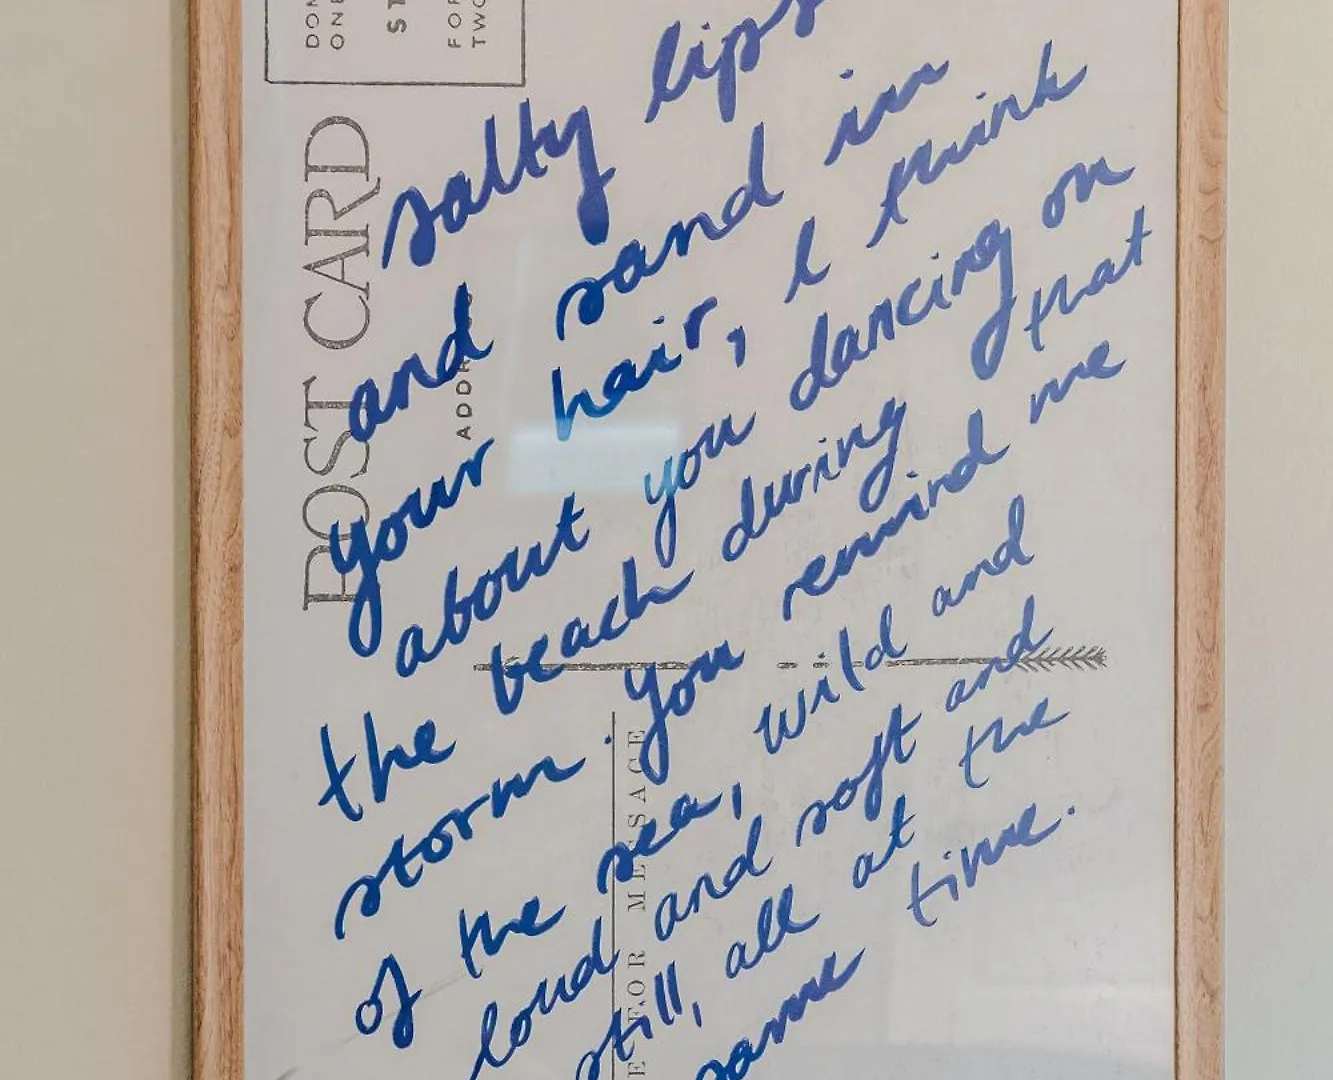 salty lips
and sand in
your hair, I think
about you dancing on
the beach during that
storm. You remind me
of the sea, wild and
loud and soft and
still, all at the
same time.
POST CARD
ADDRESS
DOM
ONE
ST
FOR
TWO
E FOR MESSAGE